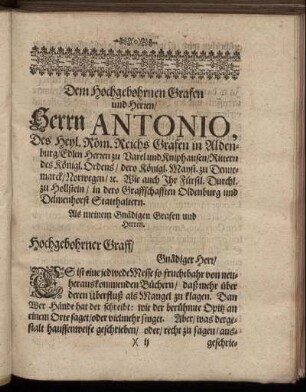 Dem Hochgebohrnen Grafen
und Herren/
Herrn ANTONIO,
Des Heyl. Röm. Reichs Grafen in Alden-
burg/Edlen Herren zu Varel und Kniphausen/Rittern
des Königl. Ordens/ dero Königl. Mayst. zu Denne-
marck/Norwegen/ ꝛc. Wie auch Ihr Fürstl. Durchl.
zu Hollstein/ in dero Graffschafften Oldenburg und
Delmenhorst Stathaltern.
Als meinem Gnädigen Grafen und
Herren.
Hochgebohrner Graff/
Gnädiger Herr/
ES ist eine jedwede Messe so fruchtbahr von neu-
heraus kommenden Büchern/ daß mehr über
deren überfluß als Mangel zu klagen. Dan
Wer Hände hat der schreibt: wie der berühmte Opitz/ an
einem Orte saget/oder vielmehr singet. Aber/was derge-
stalt hauffenweise geschrieben/ oder/recht zu sagen/aus-
X ij
geschrie-